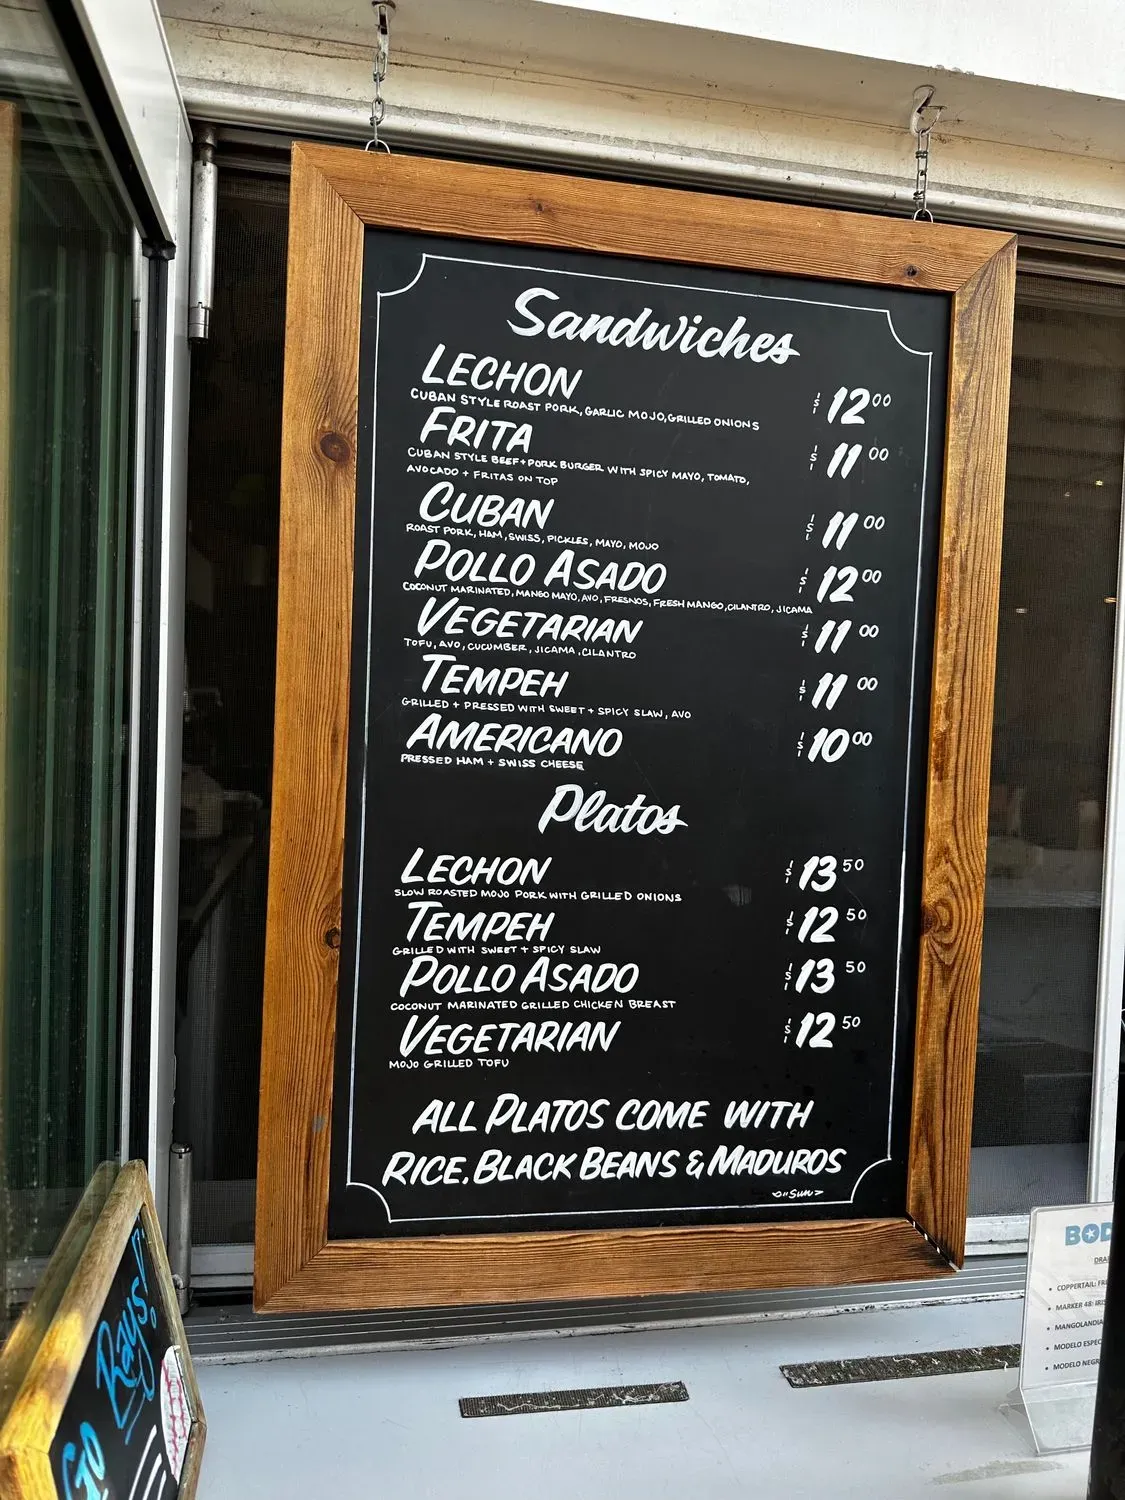 Sandwiches
LECHON $12 00
CUBAN STYLE ROAST PORK, GARLIC MOJO, GRILLED ONIONS
FRITA $11 00
CUBAN STYLE BEEF + PORK BURGER WITH SPICY MAYO, TOMATO,
AVOCADO + FRITAS ON TOP
CUBAN $11 00
ROAST PORK, HAM, SWISS, PICKLES, MAYO, MOJO
POLLO ASADO $12 00
COCONUT MARINATED, MANGO MAYO, AVO, FRESNOS, FRESH MANGO, CILANTRO, JICAMA
VEGETARIAN $11 00
TOFU, AVO, CUCUMBER, JICAMA, CILANTRO
TEMPEH $11 00
GRILLED + PRESSED WITH SWEET + SPICY SLAW, AVO
AMERICANO $10 00
PRESSED HAM + SWISS CHEESE
Platos
LECHON $13 50
SLOW ROASTED MOJO PORK WITH GRILLED ONIONS
TEMPEH $12 50
GRILLED WITH SWEET + SPICY SLAW
POLLO ASADO $13 50
COCONUT MARINATED GRILLED CHICKEN BREAST
VEGETARIAN $12 50
MOJO GRILLED TOFU
ALL PLATOS COME WITH
RICE. BLACK BEANS & MADUROS
GO Rays!
BOD
DRA
• COPPERTAIL: FR
• MARKER 48: IRIS
• MANGOLANDIA
• MODELO ESPEC
• MODELO NEGR